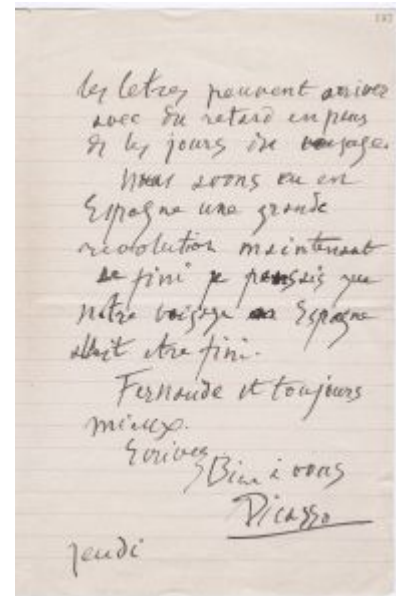 les letres peuvent arriver
avec du retard en plus
de les jours du voyage.
Nous avons eu en
Espagne une grande
revolution maintenant
se fini je pensais que
notre voyage en Espagne
allait etre fini.
Fernande et toujours
mieux.
Ecrives
Bien à vous
Picasso
jeudi